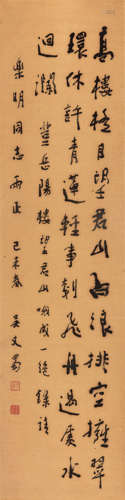 高楼極目望君山白浪排空擁翠
環休許青蓮輕事剗飛舟過處水
迴瀾 登岳陽樓望君山哦成一絕録請
樂明同志正 己未春 吴丈蜀